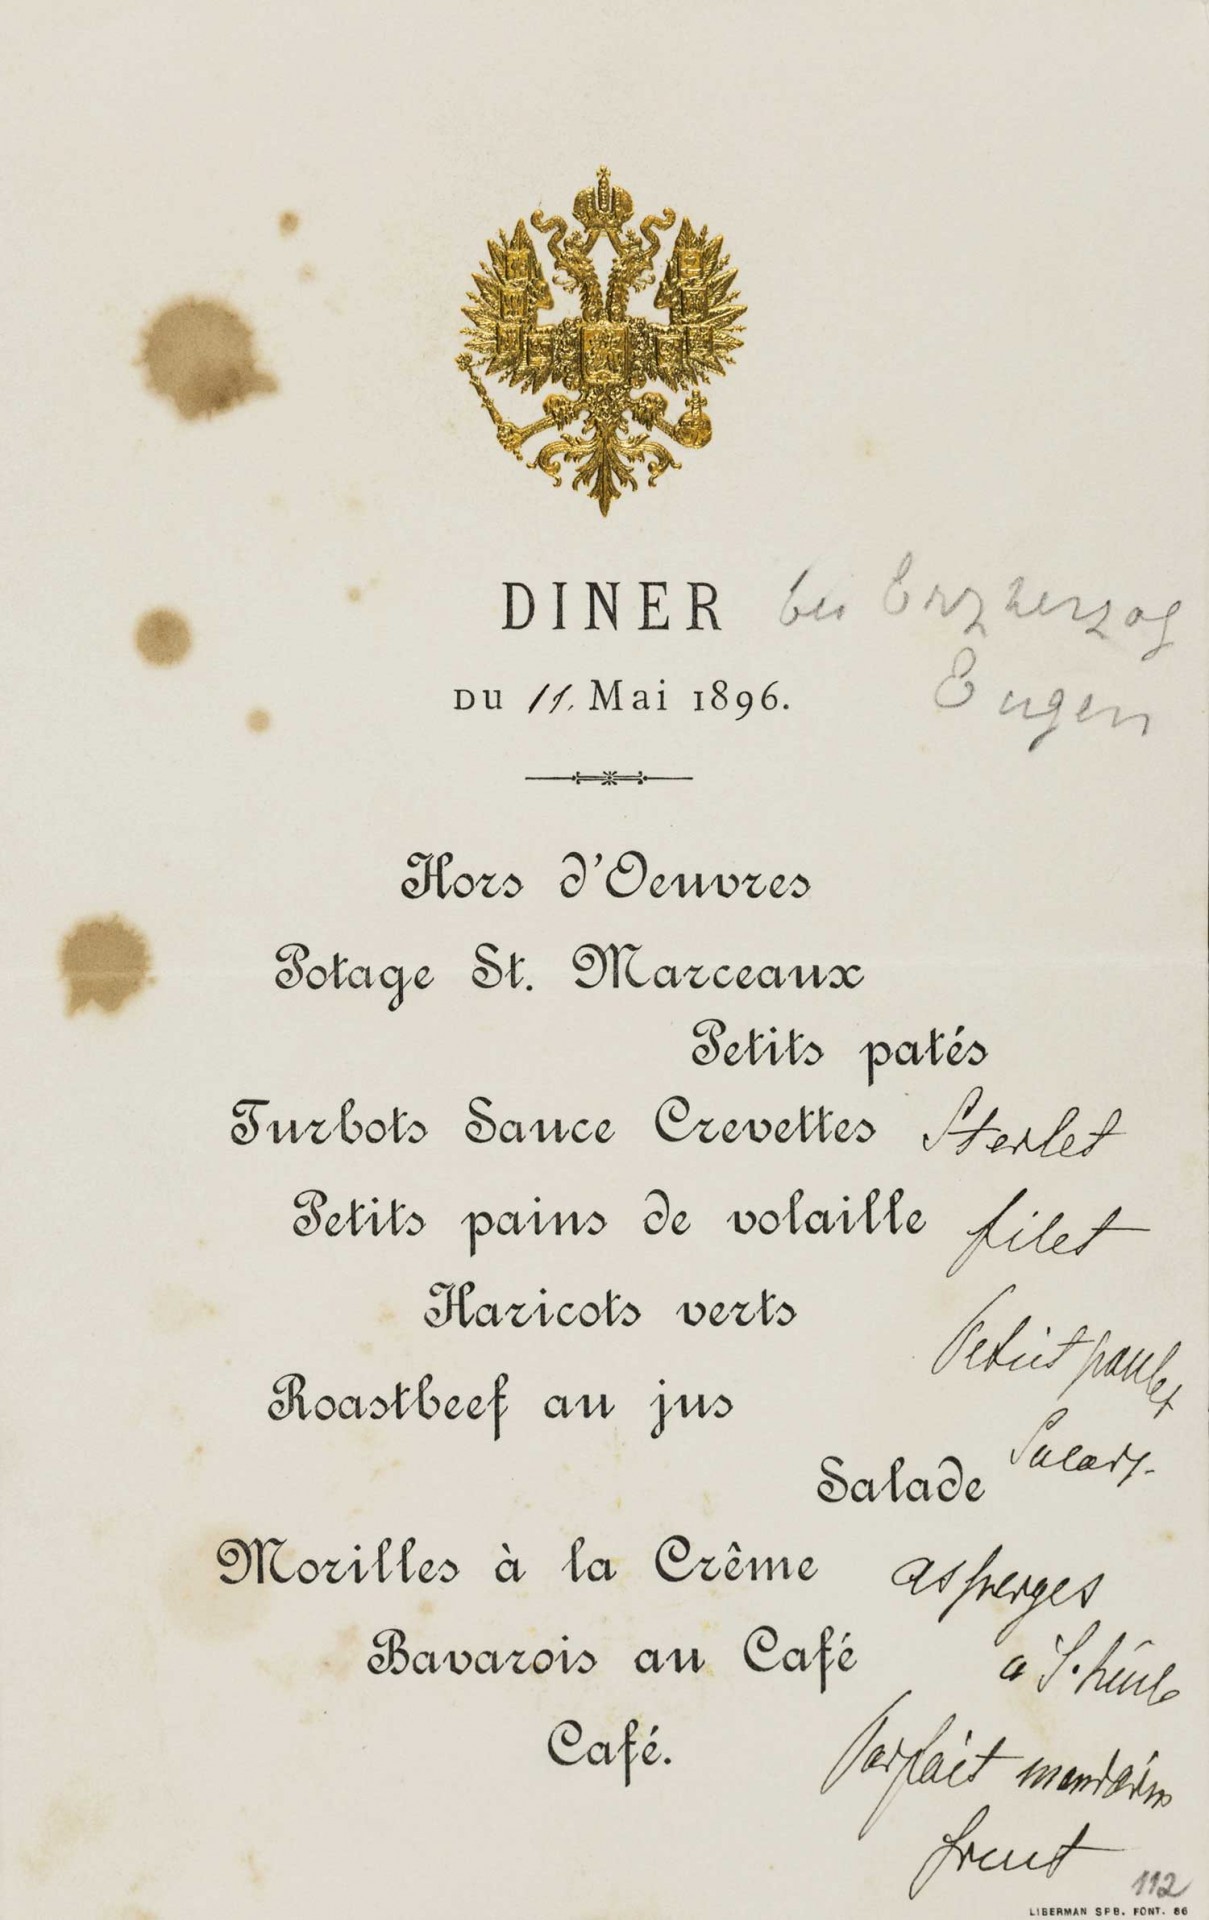 DINER bei Erzherzog
Eugen
DU 11. Mai 1896.
Hors d'Oeuvres
Potage St. Marceaux
Petits patés
Turbots Sauce Crevettes Sterlet
Petits pains de volaille filet
Haricots verts
Petit poulet
Roastbeef au jus
Salade
Morilles à la Crême asperges
Bavarois au Café a l'huile
Café. Parfait mandarin
fruit
112
LIBERMAN SPB. FONT. 86